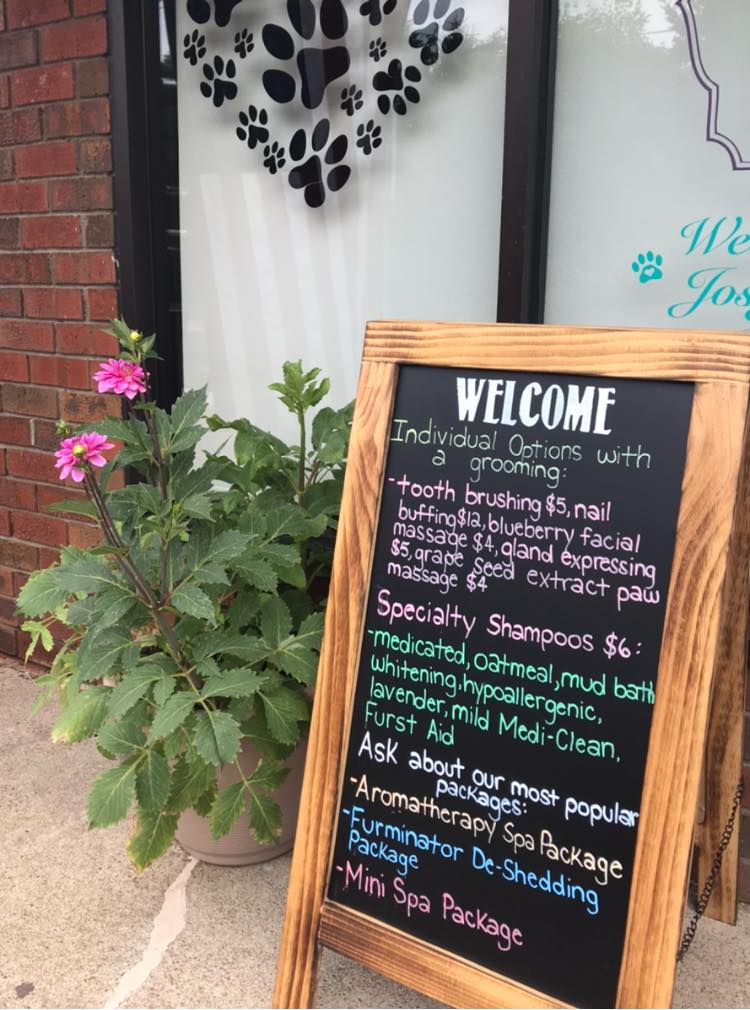 We
Jos
WELCOME
Individual Options with
a grooming:
-tooth brushing $5, nail
buffing $12, blueberry facial
massage $4, gland expressing
$5, grape seed extract paw
massage $4
Specialty Shampoos $6:
-medicated, oatmeal, mud bath
whitening, hypoallergenic,
lavender, mild Medi-Clean,
Furst Aid
Ask about our most popular
packages:
-Aromatherapy Spa Package
-Furminator De-Shedding
Package
-Mini Spa Package